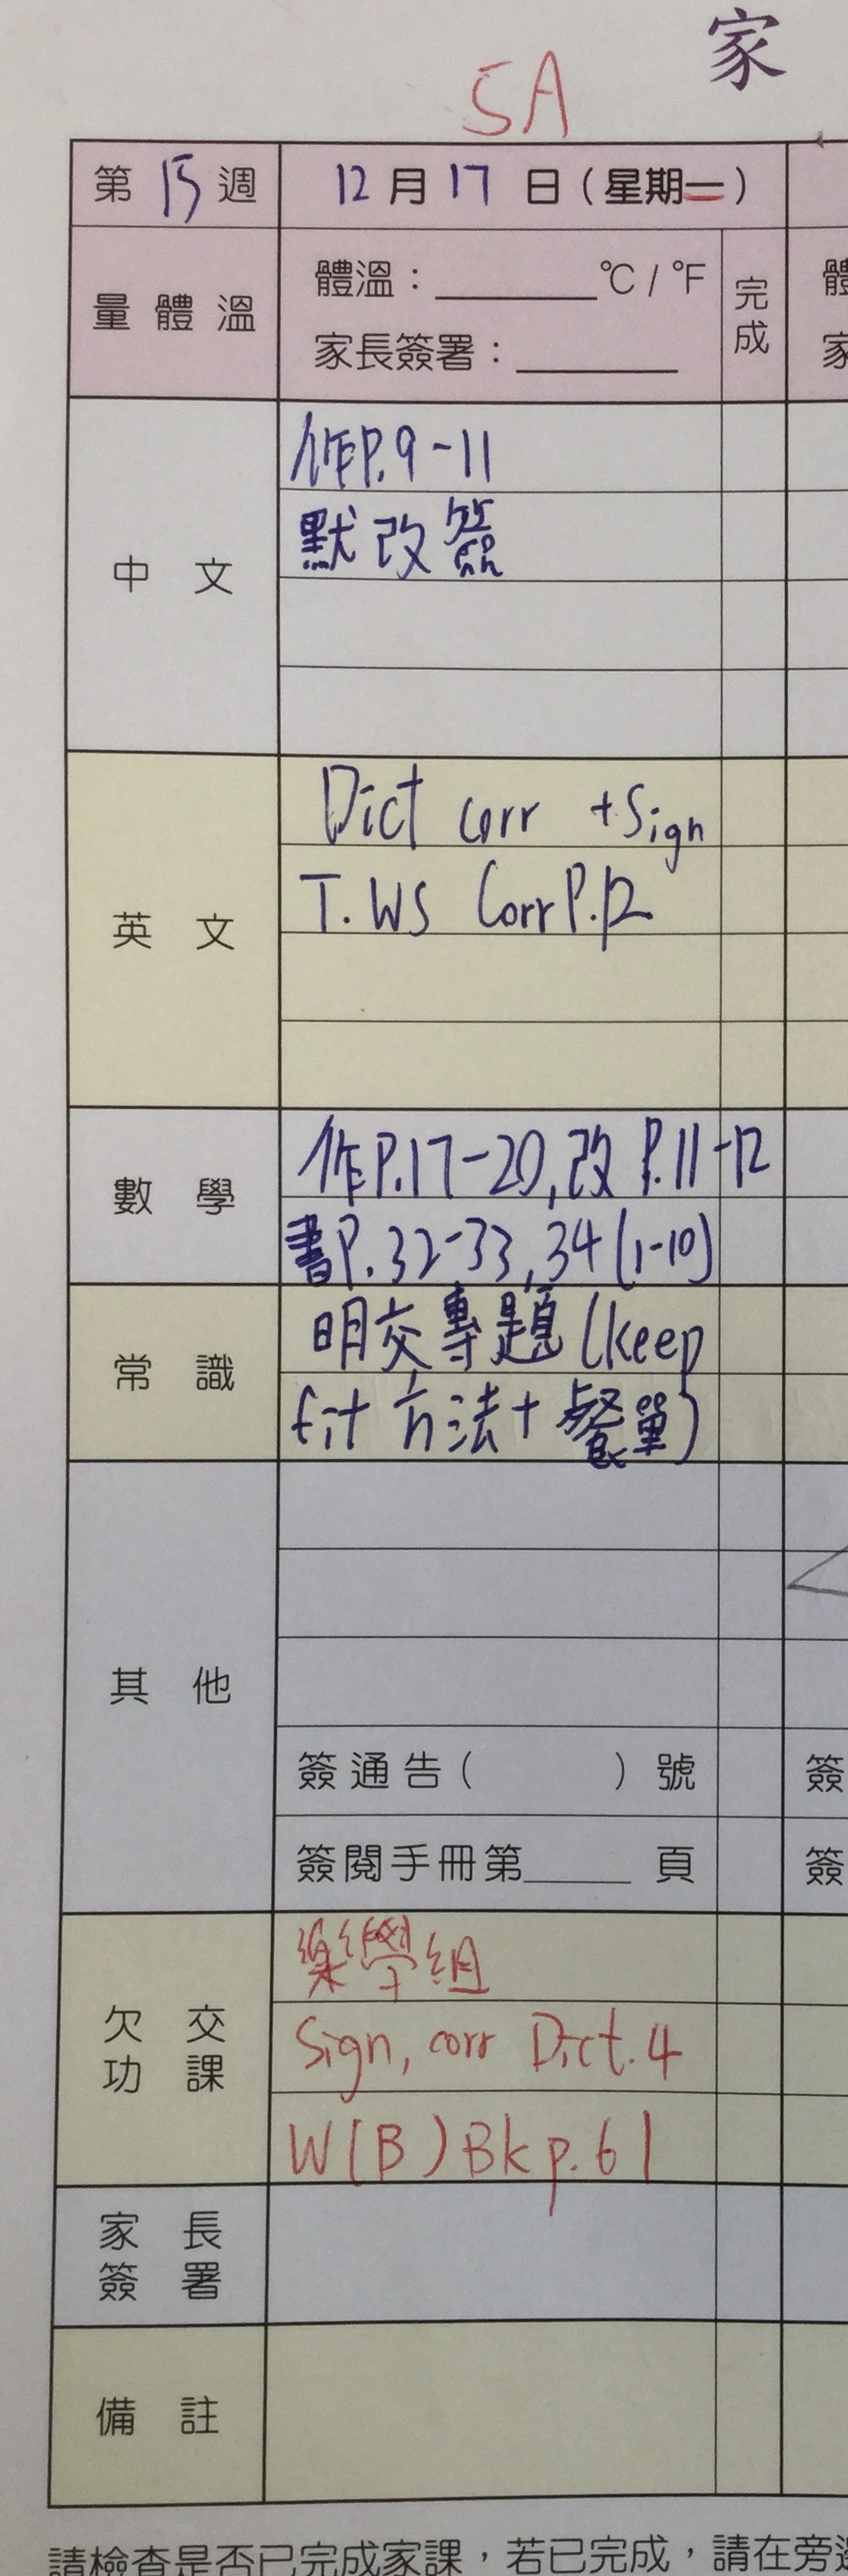 家
5A
第 15 週
12 月 17 日（星期一）
量體溫
體溫：______℃ / ℉
家長簽署：______
完成
體
家
中文
作P.9-11
默改簽
英文
Dict corr +Sign
T. WS Corr P.12
數學
作P.17-20,改P.11-12
書P.32-33,34(1-10)
常識
明交專題(keep
fit 方法+餐單)
其他
簽通告（ ）號
簽
簽閱手冊第______頁
簽
欠交功課
樂學組
Sign, corr Dict. 4
W(B) Bk p.61
家長簽署
備註
請檢查是否已完成家課，若已完成，請在旁